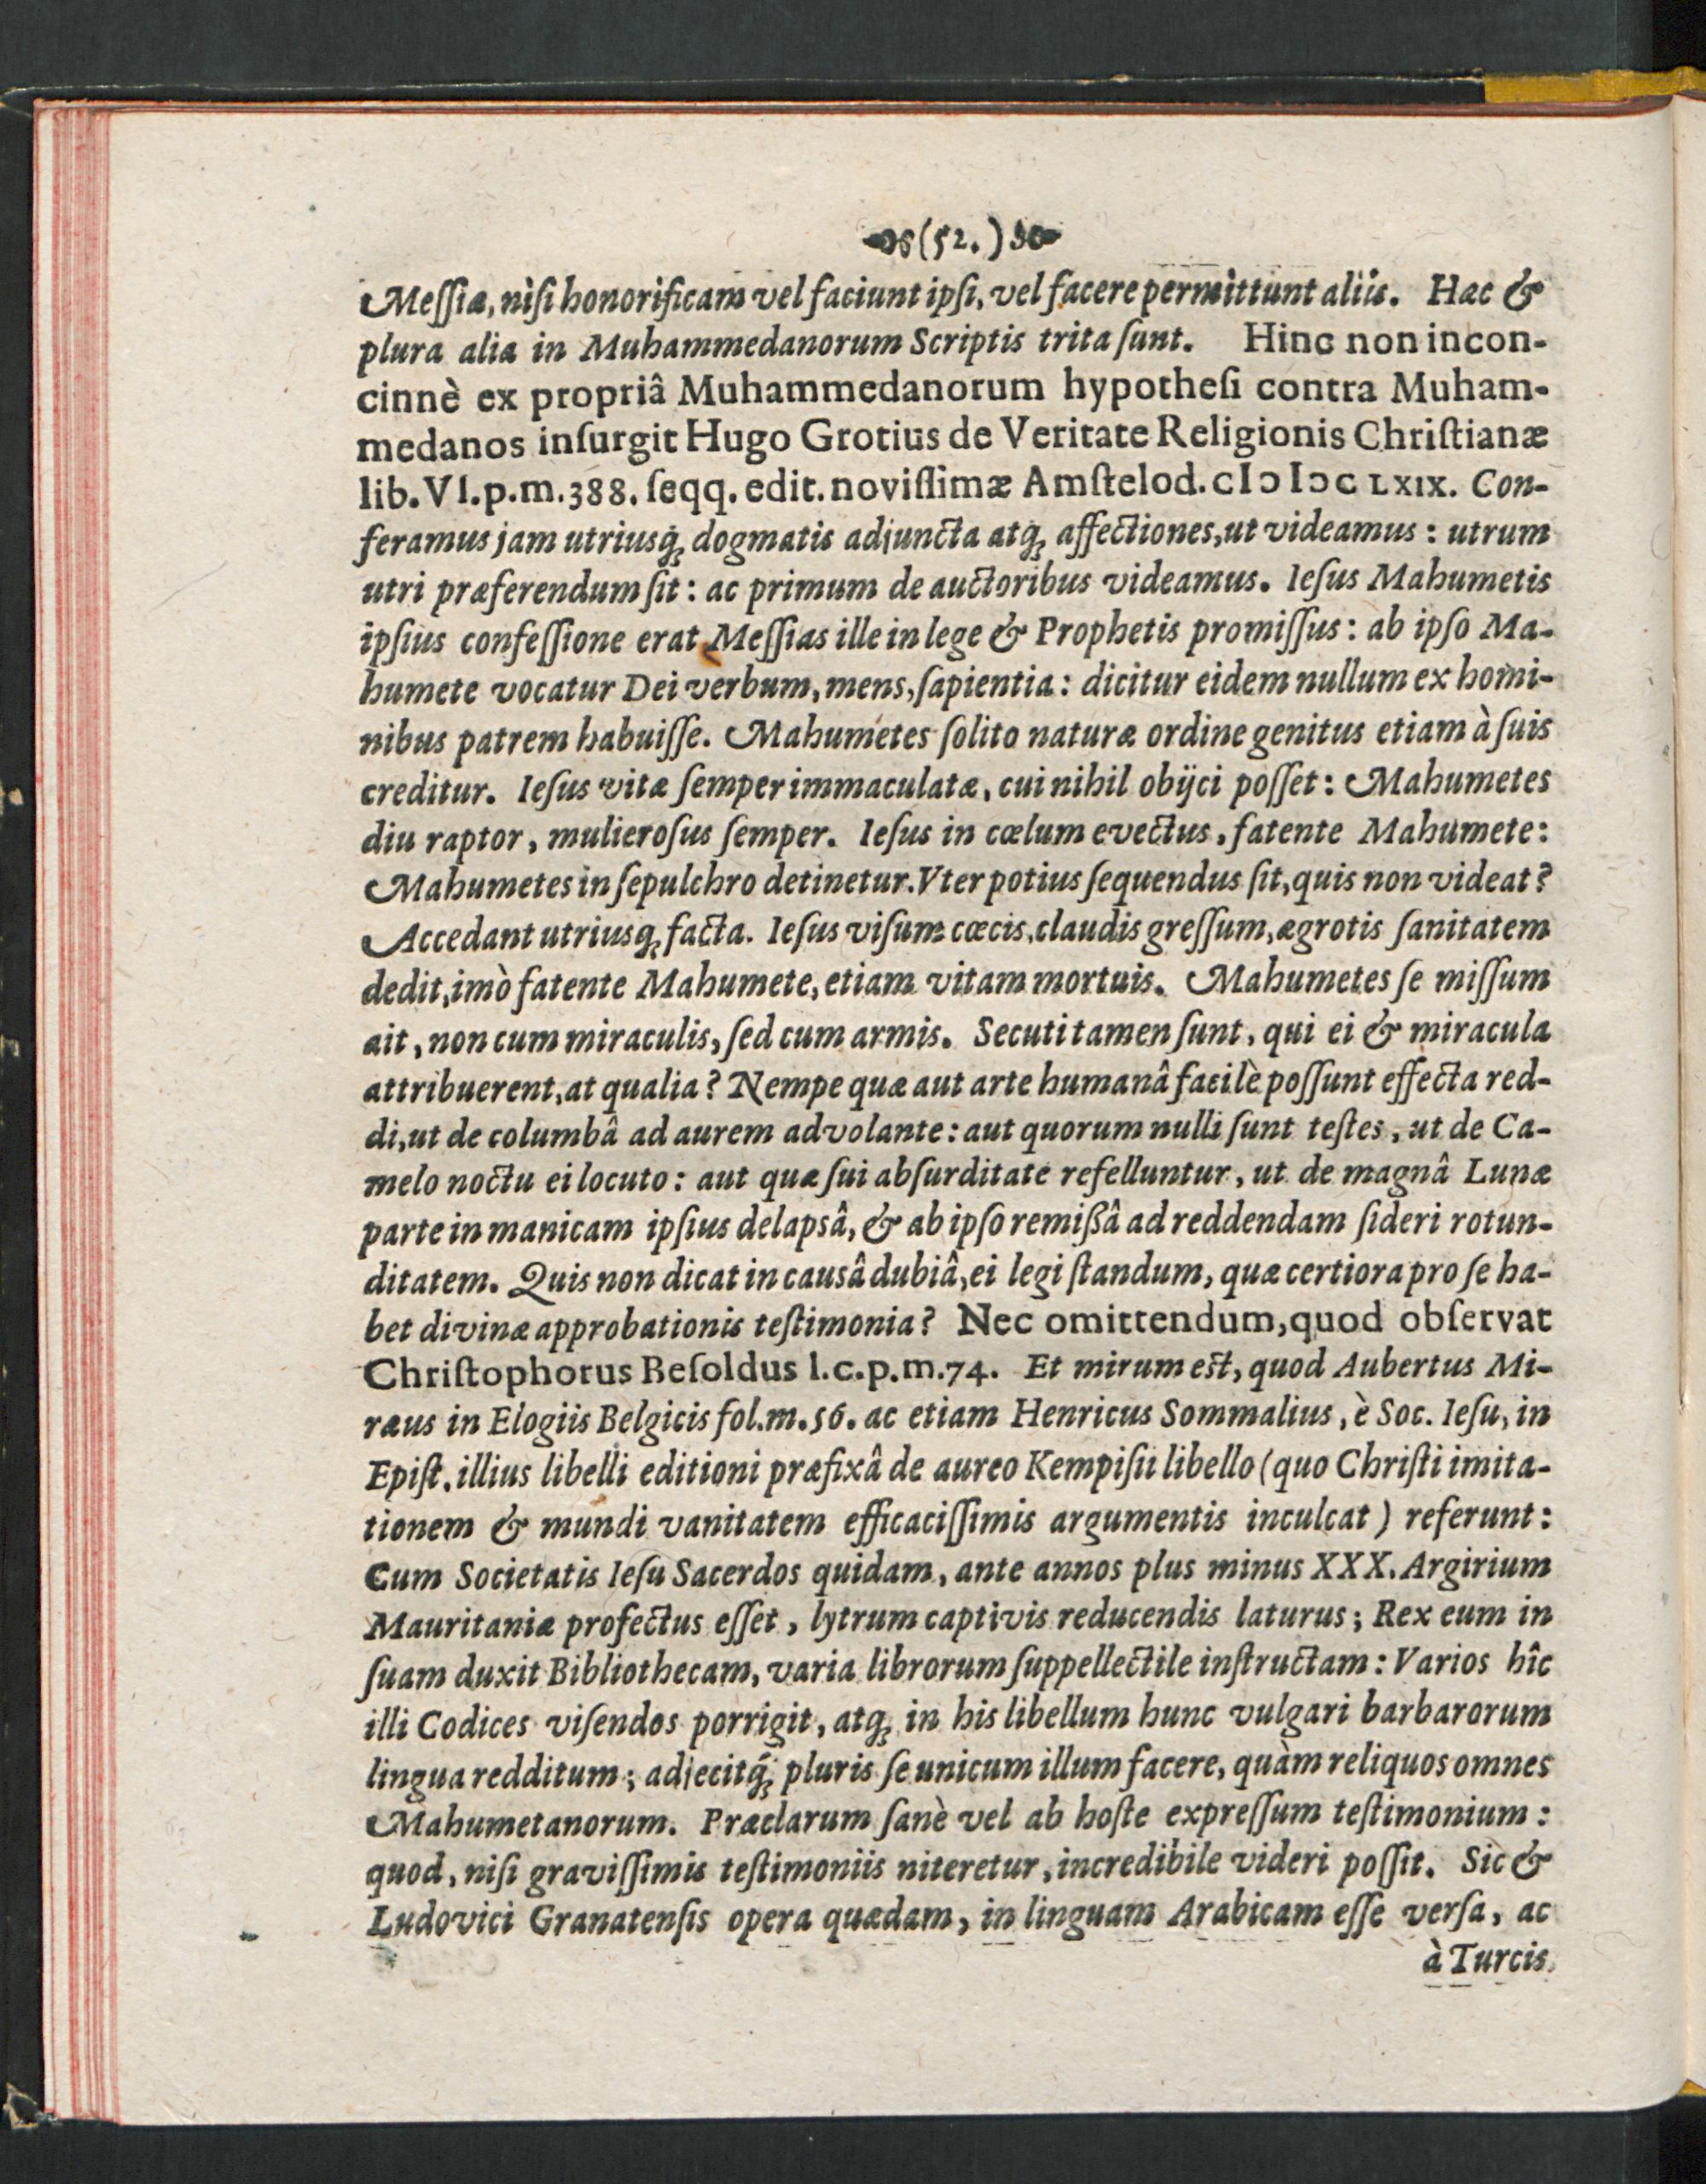 (52.)
Meſſiæ, niſi honorificam vel faciunt ipſi, vel facere permittunt aliis. Hæc &
plura alia in Muhammedanorum Scriptis trita ſunt. Hinc non incon-
cinnè ex propriâ Muhammedanorum hypotheſi contra Muham-
medanos inſurgit Hugo Grotius de Veritate Religionis Chriſtianæ
lib. VI. p. m. 388. ſeqq. edit. noviſſimæ Amſtelod. cIↄ Iↄc LXIX. Con-
feramus jam utriusq́; dogmatis adjuncta atq́; affectiones, ut videamus: utrum
utri præferendum ſit: ac primum de auctoribus videamus. Ieſus Mahumetis
ipſius confeſſione erat Meſſias ille in lege & Prophetis promiſſus: ab ipſo Ma-
humete vocatur Dei verbum, mens, ſapientia: dicitur eidem nullum ex homi-
nibus patrem habuiſſe. Mahumetes ſolito naturæ ordine genitus etiam à ſuis
creditur. Ieſus vitæ ſemper immaculatæ, cui nihil obijci poſſet: Mahumetes
diu raptor, mulieroſus ſemper. Ieſus in cœlum evectus, fatente Mahumete:
Mahumetes in ſepulchro detinetur. Vter potius ſequendus ſit, quis non videat?
Accedant utriusq; facta. Ieſus viſum cœcis, claudis greſſum, ægrotis ſanitatem
dedit, imò fatente Mahumete, etiam vitam mortuis. Mahumetes ſe miſſum
ait, non cum miraculis, ſed cum armis. Secuti tamen ſunt, qui ei & miracula
attribuerent, at qualia? Nempe quæ aut arte humanâ facilè poſſunt effecta red-
di, ut de columbâ ad aurem advolante: aut quorum nulli ſunt teſtes, ut de Ca-
melo noctu ei locuto: aut quæ ſui abſurditate refelluntur, ut de magnâ Lunæ
parte in manicam ipſius delapsâ, & ab ipſo remißâ ad reddendam ſideri rotun-
ditatem. Quis non dicat in causâ dubiâ, ei legi ſtandum, quæ certiora pro ſe ha-
bet divinæ approbationis teſtimonia? Nec omittendum, quod obſervat
Chriſtophorus Beſoldus l. c. p. m. 74. Et mirum eſt, quod Aubertus Mi-
ræus in Elogiis Belgicis fol. m. 56. ac etiam Henricus Sommalius, è Soc. Ieſu, in
Epiſt. illius libelli editioni præfixâ de aureo Kempiſii libello (quo Chriſti imita-
tionem & mundi vanitatem efficaciſſimis argumentis inculcat) referunt:
Cum Societatis Ieſu Sacerdos quidam, ante annos plus minus XXX. Argirium
Mauritaniæ profectus eſſet, lytrum captivis reducendis laturus; Rex eum in
ſuam duxit Bibliothecam, varia librorum ſuppellectile inſtructam: Varios hîc
illi Codices viſendos porrigit, atq; in his libellum hunc vulgari barbarorum
lingua redditum; adjecitq́; pluris ſe unicum illum facere, quàm reliquos omnes
Mahumetanorum. Præclarum ſanè vel ab hoſte expreſſum teſtimonium:
quod, niſi graviſſimis teſtimoniis niteretur, incredibile videri poſſit. Sic &
Ludovici Granatenſis opera quædam, in linguam Arabicam eſſe verſa, ac
à Turcis